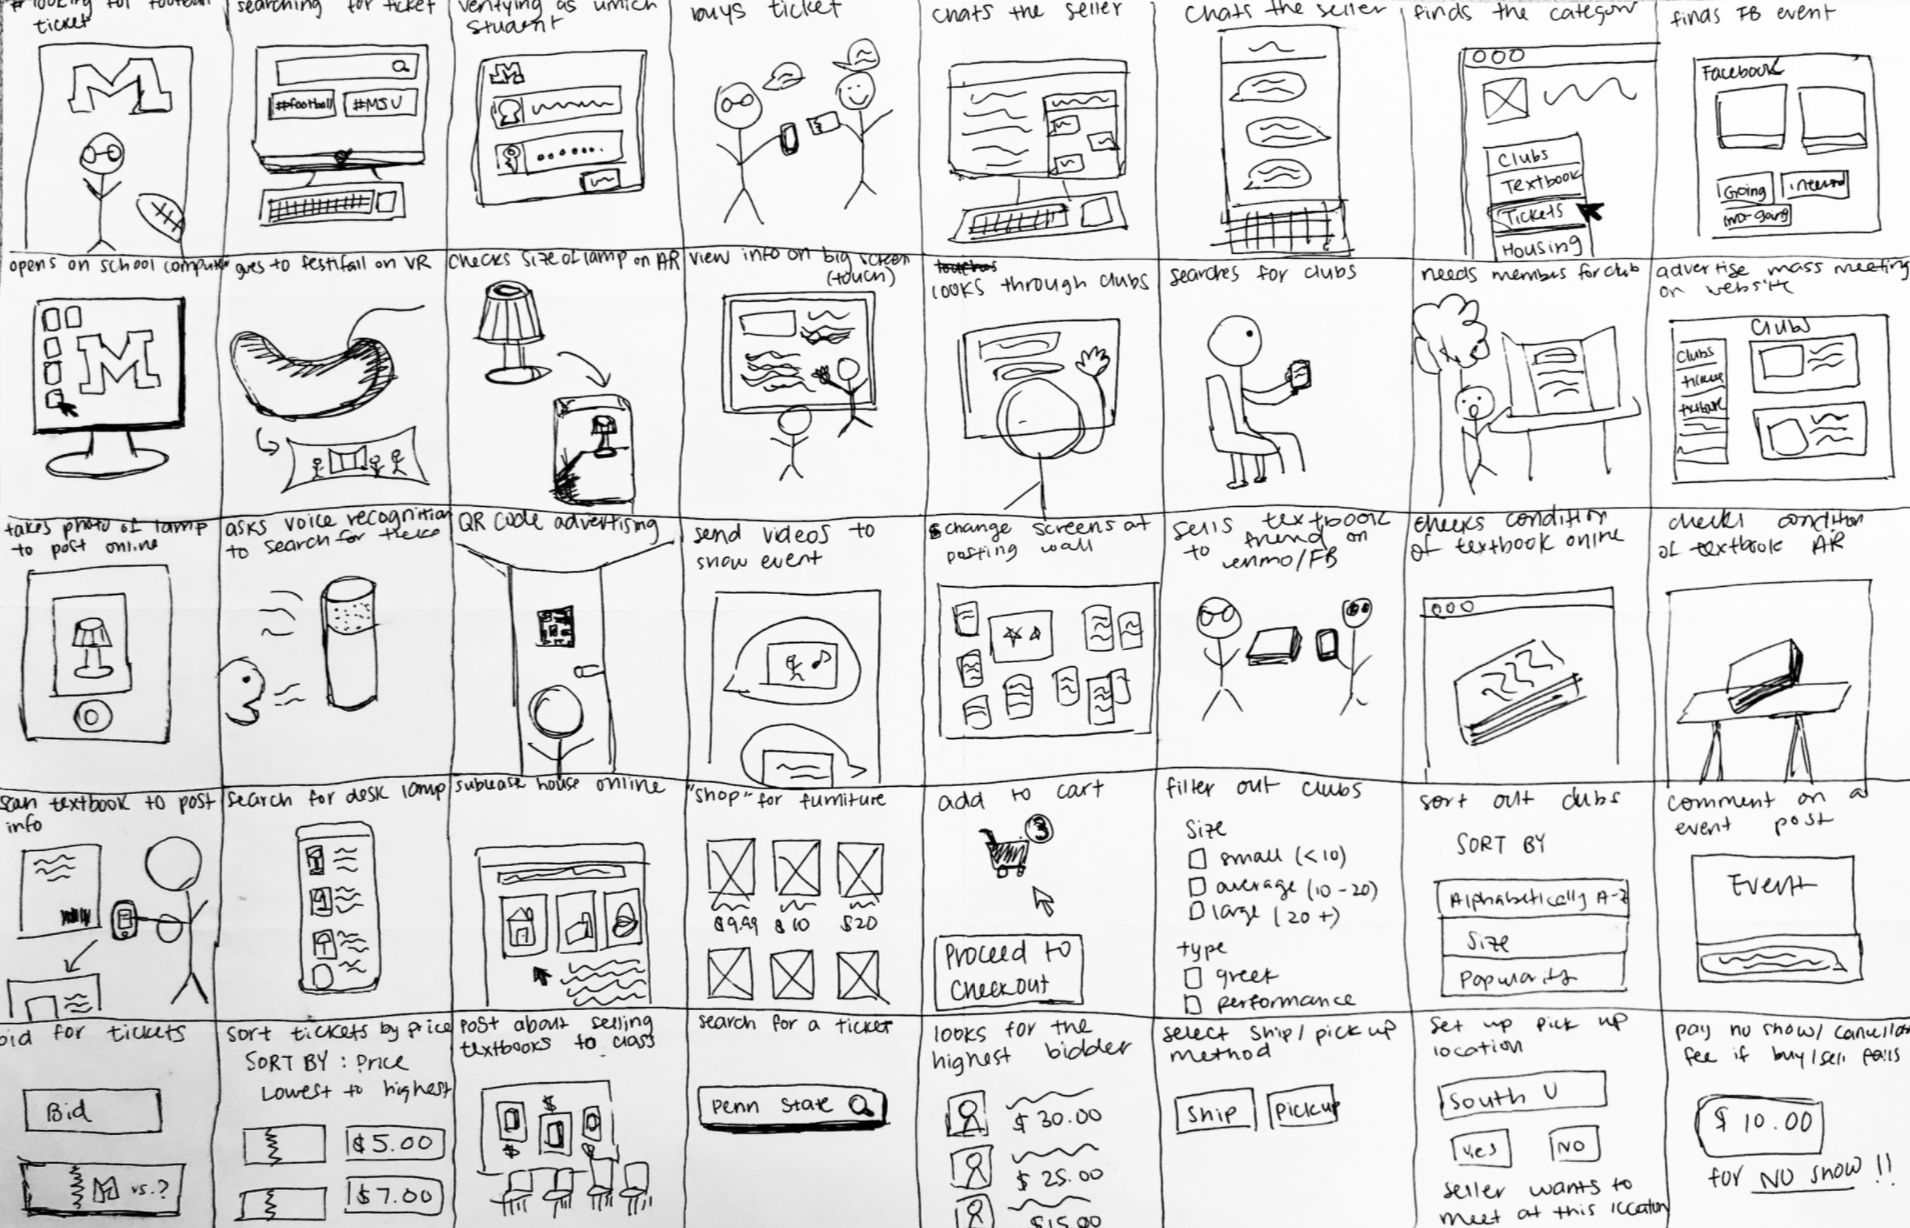 looking for football
ticket
M
searching for ticket
#football
#MSU
verifying as umich
student
M
buys ticket
chats the seller
chats the seller
finds the category
Clubs
Textbook
Tickets
Housing
finds FB event
Facebook
Going
opens on school computer
M
goes to festifall on VR
checks size of lamp on AR
view info on big screen
(touch)
looks through clubs
searches for clubs
needs members for club
advertise mass meeting
on website
Clubs
Clubs
takes photo of lamp
to post online
asks voice recognition
to search for
QR code advertising
send videos to
show event
change screens at
posting wall
sells textbook
to friend on
venmo/FB
checks condition
of textbook online
checks condition
of textbook AR
scan textbook to post
info
search for desk lamp
sublease house online
"shop" for furniture
$9.99
$10
$20
add to cart
3
Proceed to
Checkout
filter out clubs
Size
small (<10)
average (10-20)
large (20+)
type
greek
performance
sort out clubs
SORT BY
Alphabetically A-Z
Size
Popularity
comment on a
event post
Event
bid for tickets
Bid
M vs.?
sort tickets by price
SORT BY : Price
Lowest to highest
$5.00
$7.00
post about selling
textbooks to class
$
$
search for a ticket
Penn State
looks for the
highest bidder
$30.00
$25.00
$15.00
select ship/pick up
method
Ship
Pickup
set up pick up
location
South U
Yes
NO
seller wants to
meet at this location
pay no show/cancellation
fee if buy/sell fails
$10.00
for NO show!!